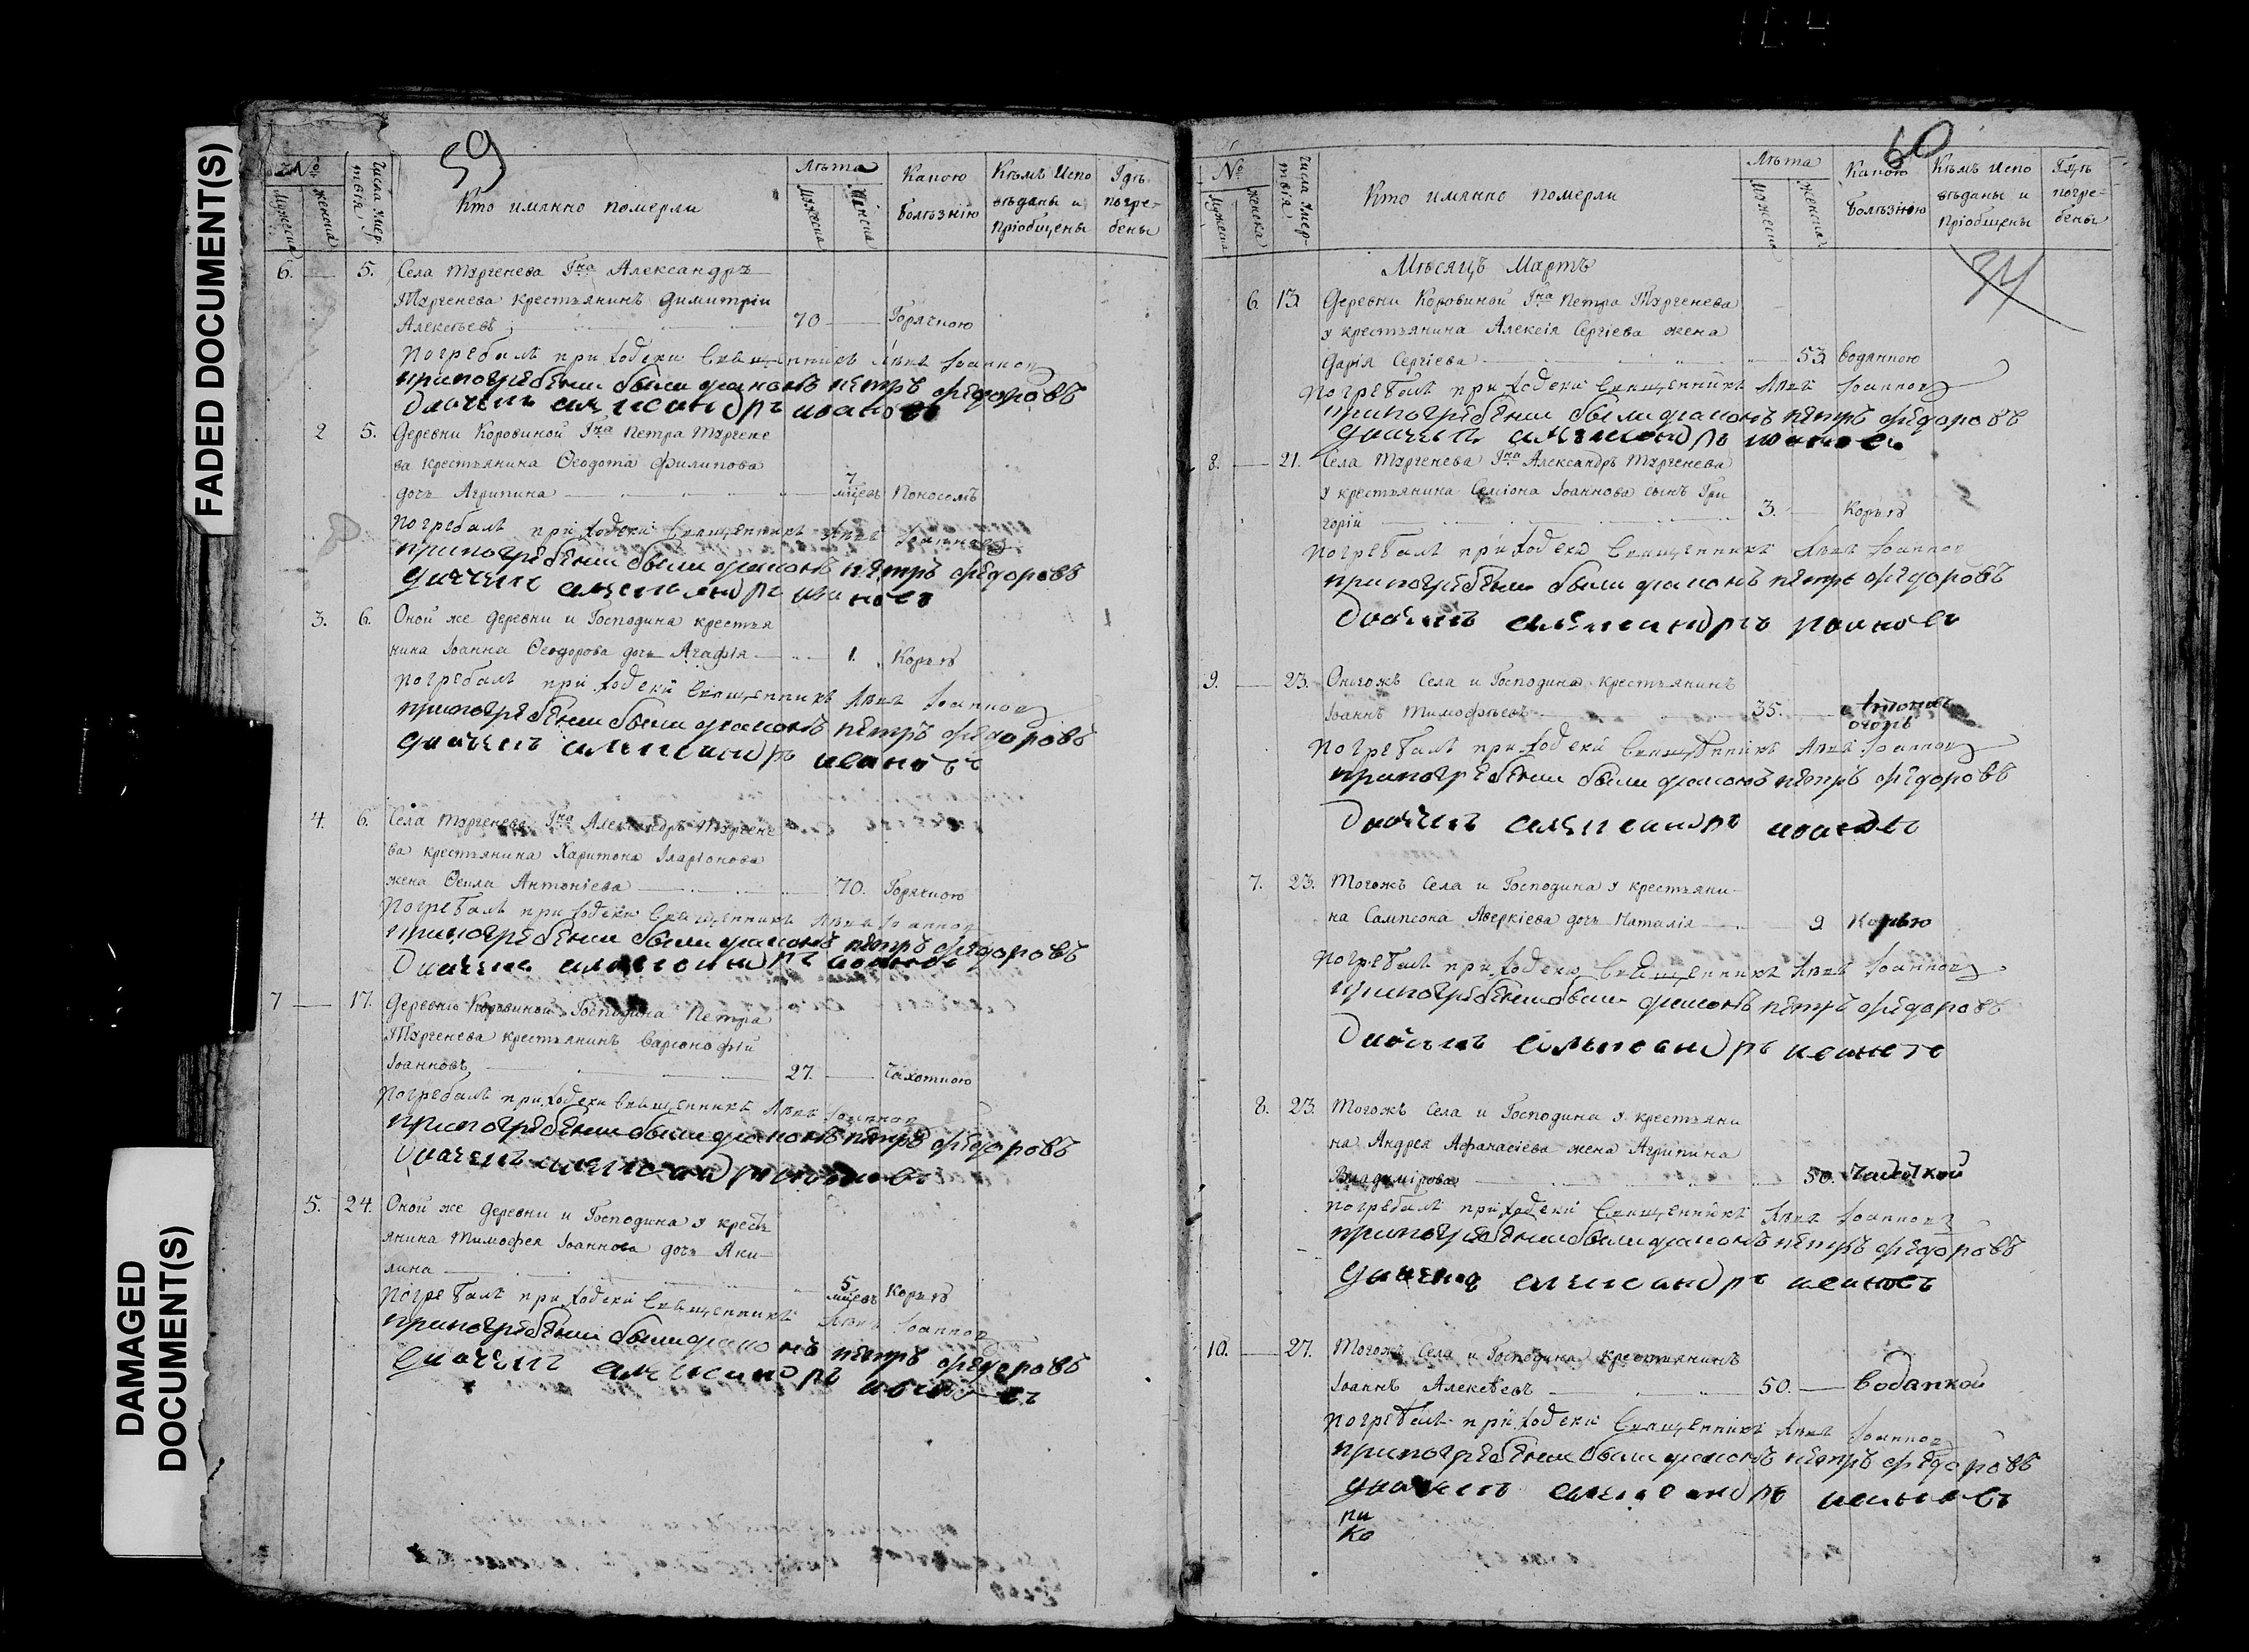 FADED DOCUMENT(S)
DAMAGED
DOCUMENT(S)
59
№
Мужеска
Женска
Числа Умер-
твія
Кто имянно померли
Лѣта
Мужеска
Женска
Какою
болѣзнію
Кѣмъ Испо
вѣданы и
пріобщены
Гдѣ
погре-
бены
6. 5. Села Тургенева Гна Александръ
Тургенева крестьянинъ Димитріи
Алексѣевъ 70 Горячкою
погребалъ приходскй Священникъ Левъ Іоаннов
припогребении были диаконъ петръ федоровъ
диачекъ александръ иванов
2 5. Деревни Коровиной Гна Петра Тургене
ва крестьянина Ѳеодота Филипова
дочь Агрипина 7 мцевъ Поносомъ
погребалъ приходскй Священникъ Левъ Іоаннов
припогребении были диаконъ петръ федоровъ
диачекъ александръ иванов
3. 6. Оной же Деревни и Господина крестья
нина Іоанна Ѳеодорова дочь Агафія 1. Корью
погребалъ приходскй Священникъ Левъ Іоаннов
припогребении были диаконъ петръ федоровъ
диачекъ александръ иванов
4. 6. Села Тургенева Гна Александръ Тургене
ва крестьянина Харитона Іларіонова
жена Ѳекла Антоніева 70. Горячкою
погребалъ приходскй Священникъ Левъ Іоаннов
припогребении были диаконъ петръ федоровъ
диачекъ александръ иванов
7 17. Деревни Коровиной Господина Петра
Тургенева крестьянинъ Варсонофій
Іоанновъ 27. Чахоткою
погребалъ приходскй Священникъ Левъ Іоаннов
припогребении были диаконъ петръ федоровъ
диачекъ александръ
5. 24. Оной же Деревни и Господина у кресть
янина Тимофея Іоаннова дочь Аки-
лина 5 мцевъ Корью
погребалъ приходскй Священникъ Левъ Іоаннов
припогребении были диаконъ петръ федоровъ
диачекъ александръ иванов
60
№
Мужеска
Женска
Числа Умер-
твія
Кто имянно померли
Лѣта
Мужеска
Женска
Какою
болѣзнію
Кѣмъ Испо
вѣданы и
пріобщены
Гдѣ
погре-
бены
Мѣсяцъ Мартъ
6. 13. Деревни Коровиной Гна Петра Тургенева
у крестьянина Алексія Сергіева жена
Дарія Сергіева 53 Водянкою
погребалъ приходскй Священникъ Левъ Іоаннов
припогребении были диаконъ петръ федоровъ
диачекъ александръ иванов
8. 21. Села Тургенева Гна Александръ Тургенева
у крестьянина Семіона Іоаннова сынъ Гри
горій 3. Корью
погребалъ приходскй Священникъ Левъ Іоаннов
припогребении были диаконъ петръ федоровъ
диачекъ александръ иванов
9. 23. Оногожъ Села и Господина крестьянинъ
Іоаннъ Тимофѣевъ 35.
погребалъ приходскй Священникъ Левъ Іоаннов
припогребении были диаконъ петръ федоровъ
диачекъ александръ иванов
7. 23. Тогожъ Села и Господина у крестьяни-
на Сампсона Аверкіева дочь Наталія 9 Корью
погребалъ приходскй Священникъ Левъ Іоаннов
припогребении были диаконъ петръ федоровъ
диачекъ александръ иванов
8. 23. Тогожъ Села и Господина у крестьяни
на Андрея Афанасіева жена Агрипина
Владимірова 50. Чахоткой
погребалъ приходскй Священникъ Левъ Іоаннов
припогребении были диаконъ петръ федоровъ
диачекъ александръ иванов
10. 27. Тогожъ Села и Господина крестьянинъ
Іоаннъ Алексѣевъ 50. Водянкой
погребалъ приходскй Священникъ Левъ Іоаннов
припогребении были диаконъ петръ федоровъ
диачекъ александръ иванов